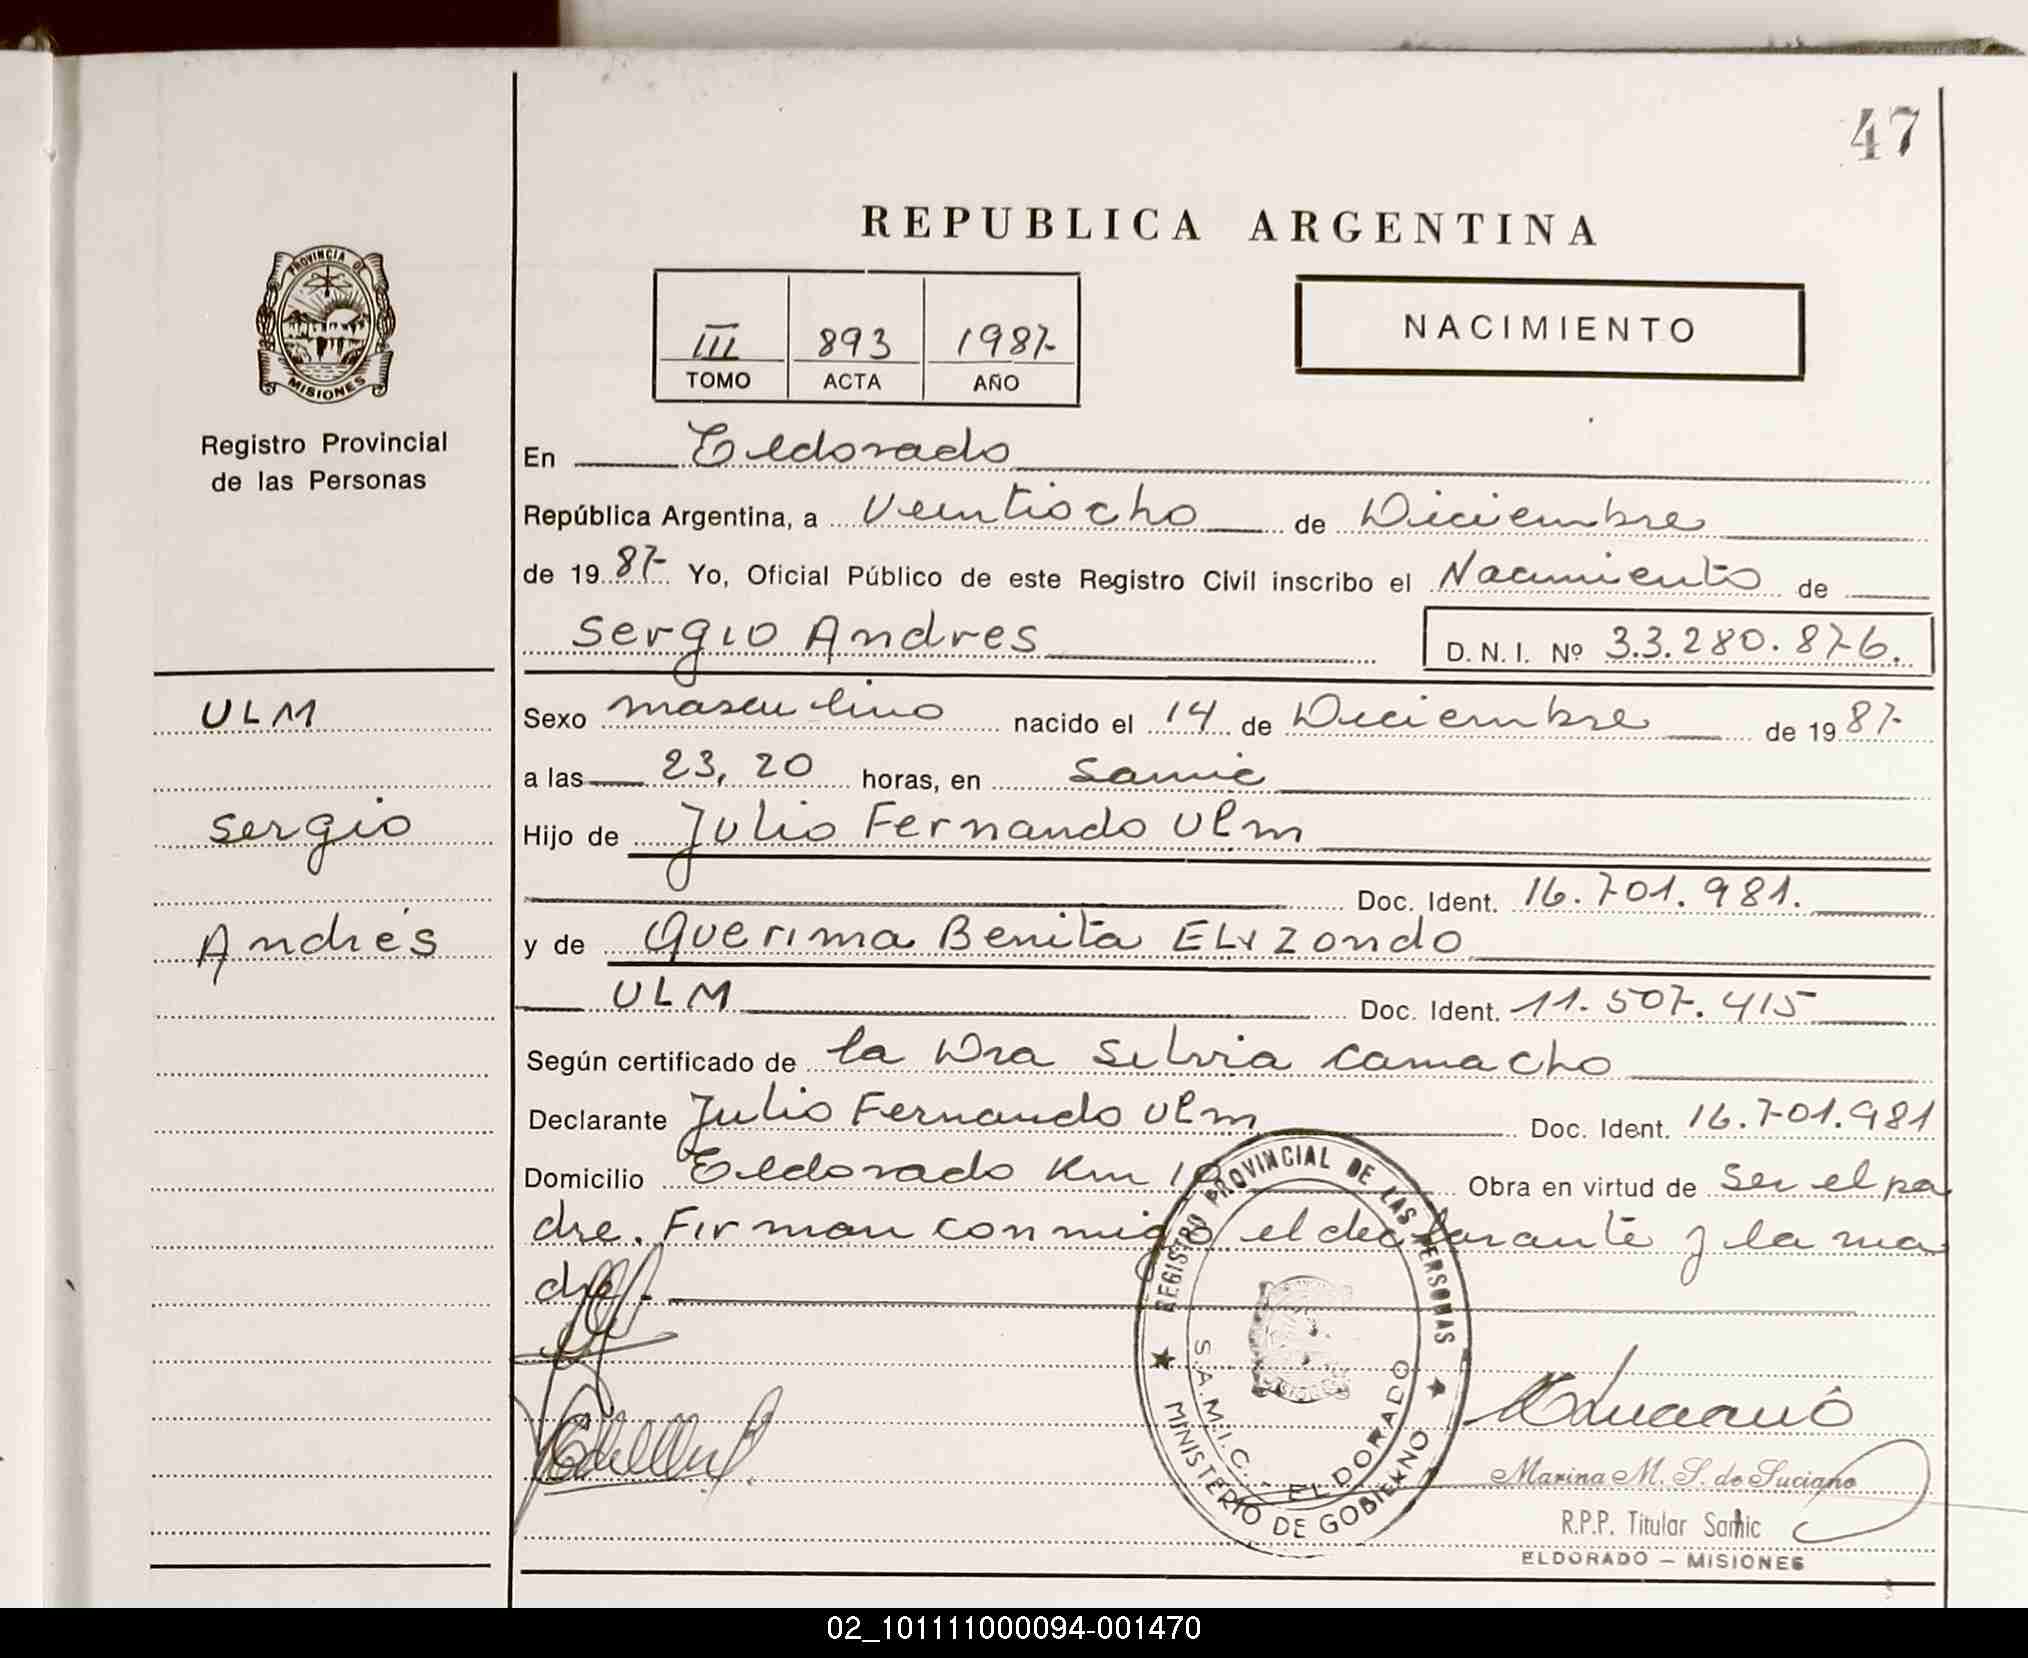 47
REPUBLICA ARGENTINA
PROVINCIA DE
MISIONES
Registro Provincial
de las Personas
III 893 1987-
TOMO ACTA AÑO
NACIMIENTO
En Eldorado
República Argentina, a Veintiocho de Diciembre
de 1987- Yo, Oficial Público de este Registro Civil inscribo el Nacimiento de
Sergio Andres D. N. I. Nº 33.280.876.
ULM
Sexo masculino nacido el 14 de Diciembre de 1987-
a las 23,20 horas, en Samic
Sergio
Hijo de Julio Fernando Ulm
Doc. Ident. 16.701.981.
Andrés
y de Querima Benita ELIZONDO
ULM Doc. Ident. 11.507.415
Según certificado de la Dra Silvia Camacho
Declarante Julio Fernando Ulm Doc. Ident. 16.701.981
Domicilio Eldorado Km 10 Obra en virtud de ser el pa
dre. Firman conmigo el declarante y la ma
dre.
REGISTRO PROVINCIAL DE LAS PERSONAS
S.A.M.I.C. - ELDORADO
MINISTERIO DE GOBIERNO
Marina M. S. de Luciano
R.P.P. Titular Samic
ELDORADO - MISIONES
02_101111000094-001470